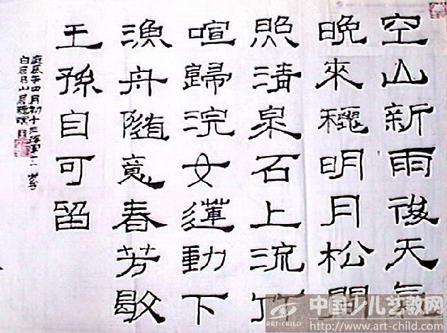 空山新雨後天氣
晚來穐明月松間
照清泉石上流竹
喧歸浣女蓮動下
漁舟隨意春芳歇
王孫自可留
中国少儿艺教网
www.art-child.com